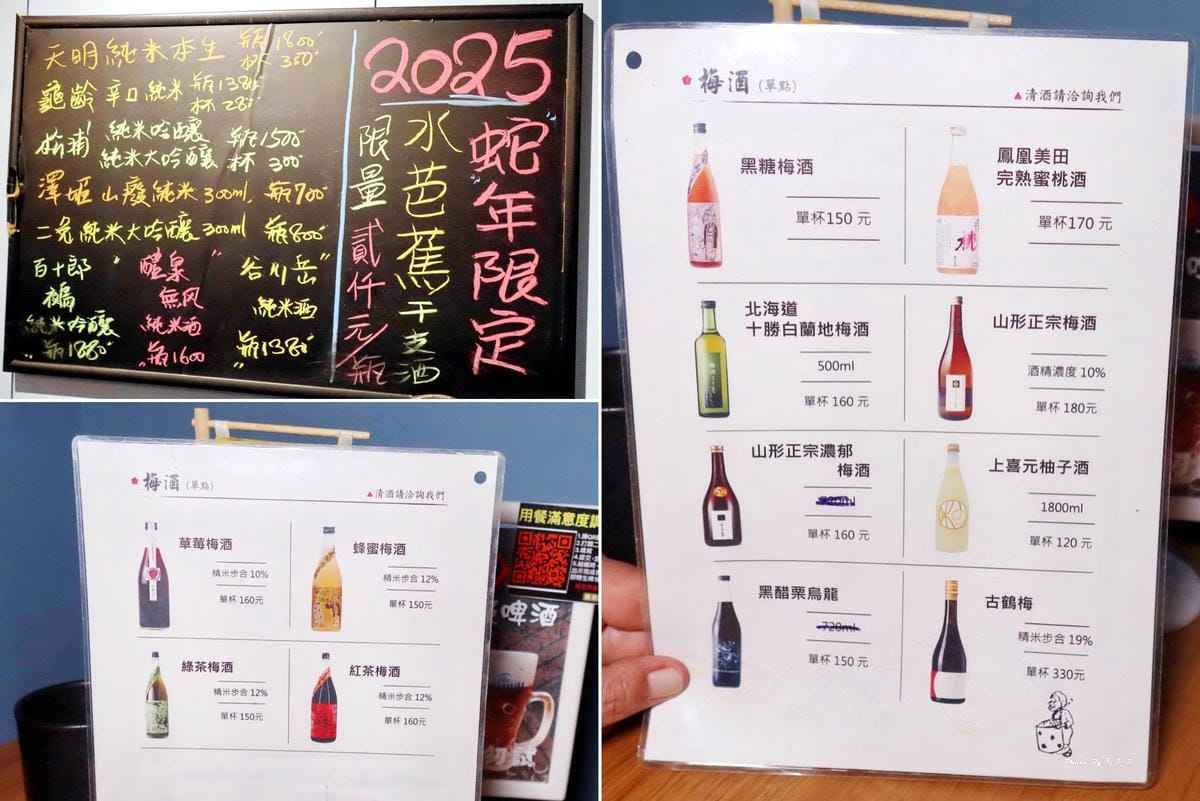 天明 純米本生 瓶1800
杯350
龜齡 辛口純米 瓶1380
杯280
松浦 純米吟釀 瓶1500
純米大吟釀 杯300
澤姬 山廢純米 300ml 瓶700
二兔 純米大吟釀 300ml 瓶800
百十郎
純米吟釀
瓶1880
醴泉
無风
純米酒
瓶1600
谷川岳
純米酒
瓶1380
2025
蛇年限定
水芭蕉干支酒
限量貳仟元/瓶
梅酒(單點)
▲清酒請洽詢我們
草莓梅酒
精米步合 10%
單杯 160元
蜂蜜梅酒
精米步合 12%
單杯 150元
綠茶梅酒
精米步合 12%
單杯 150元
紅茶梅酒
精米步合 12%
單杯 160元
用餐滿意度調
啤酒
梅酒(單點)
▲清酒請洽詢我們
黑糖梅酒
單杯150 元
鳳凰美田
完熟蜜桃酒
單杯170 元
桃
北海道
十勝白蘭地梅酒
500ml
單杯 160 元
山形正宗梅酒
酒精濃度 10%
單杯 180元
山形正宗濃郁
梅酒
單杯 160 元
上喜元柚子酒
1800ml
單杯 120 元
黑醋栗烏龍
720ml
單杯 150 元
古鶴梅
精米步合 19%
單杯 330元